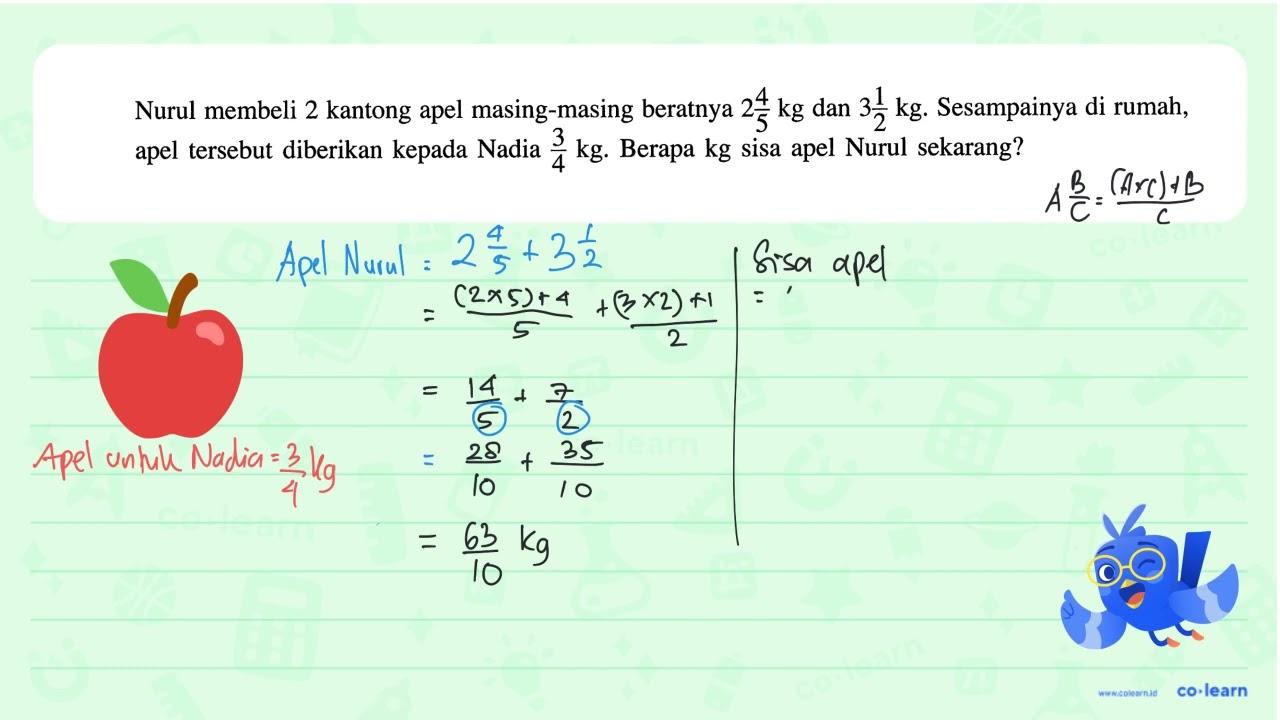 Nurul membeli 2 kantong apel masing-masing beratnya 2 4/5 kg dan 3 1/2 kg. Sesampainya di rumah,
apel tersebut diberikan kepada Nadia 3/4 kg. Berapa kg sisa apel Nurul sekarang?
A B/C = ((A×C)+B)/C
Apel Nurul = 2 4/5 + 3 1/2
= ((2×5)+4)/5 + ((3×2)+1)/2
= 14/5 + 7/2
= 28/10 + 35/10
= 63/10 kg
Apel untuk Nadia = 3/4 kg
Sisa apel
=
co·learn
co·learn
co·learn
co·learn
www.colearn.id co·learn